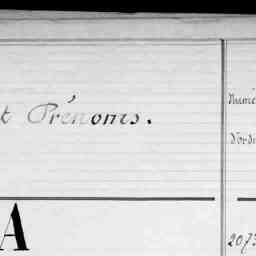 t Prénoms.
Numé
d'ordr
A
2073